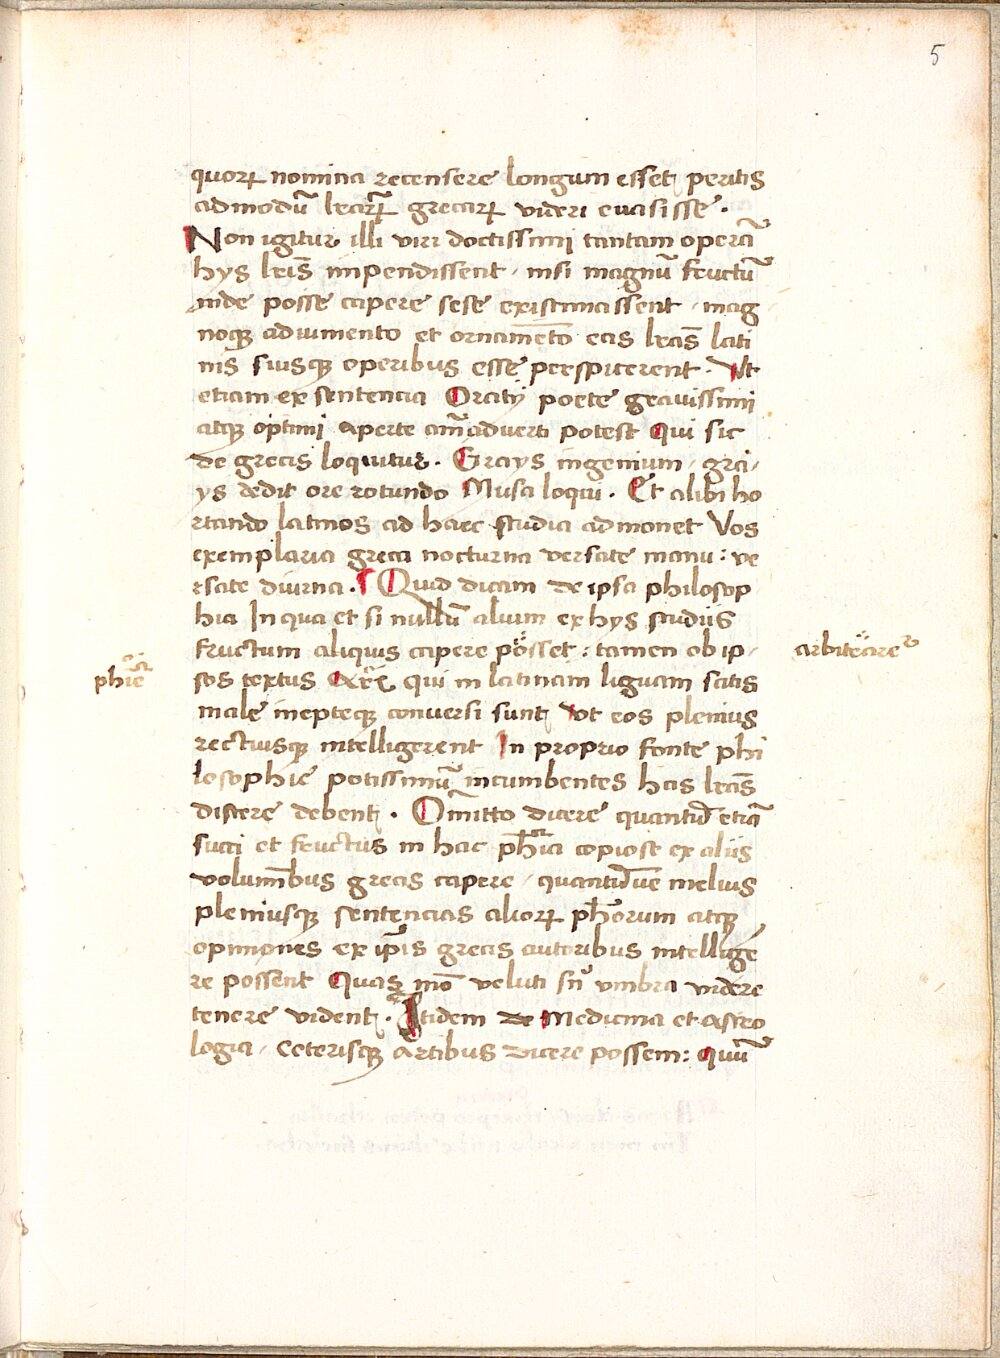 5
quoꝝ nomina recensere longum esset peritis
admodū l̄raꝝ grecaꝝ videri euasisse .
Non igitur illi viri doctissimi tantam operā
hys l̄ris impendissent , nisi magnū fructū
inde posse capere sese existimassent , mag
noqꝫ adiumento et ornam̄eto eas l̄ras lati
nis suisqꝫ operibus esse perspicerent . Vt
etiam ex sentencia Oracij poete grauissimi
atqꝫ optimi aperte am̄aduerti potest Qui sic
de grecis loquitur . Grays ingenium , gra/
ys dedit ore rotundo Musa loqui . Et alibi ho
rtando latinos ad haec studia admonet Vos
exemplaria greca nocturna versate manu : ve
rsate diurna . ¶ Quid dicam de ipsa philosop
hia In qua et si nullū alium ex hys studiis
fructum aliquis capere posset : tamen ob ip/
arbitrare
phie
sos textus Ar̄es qui in latinam liguam satis
male inepteqꝫ conuersi sunt Vt eos plenius
rectiusqꝫ intelligerent In proprio fonte phi
losophie potissimū incumbentes has l̄ras
discere debent . Om̄itto dicere quantū etiā
succi et fructus in hac ph̄ia copiose ex aliis
volumībus grecis capere , quantūue melius
pleniusqꝫ sentencias alioꝝ ph̄orum atqꝫ
opiniones ex ip̄is grecis autoribus intellige
re possent Quas mō veluti sῡ vmbra videre
tenere vident . Itidem de Medicina et astro
logia , Ceterisqꝫ Artibus dicere possem : quū